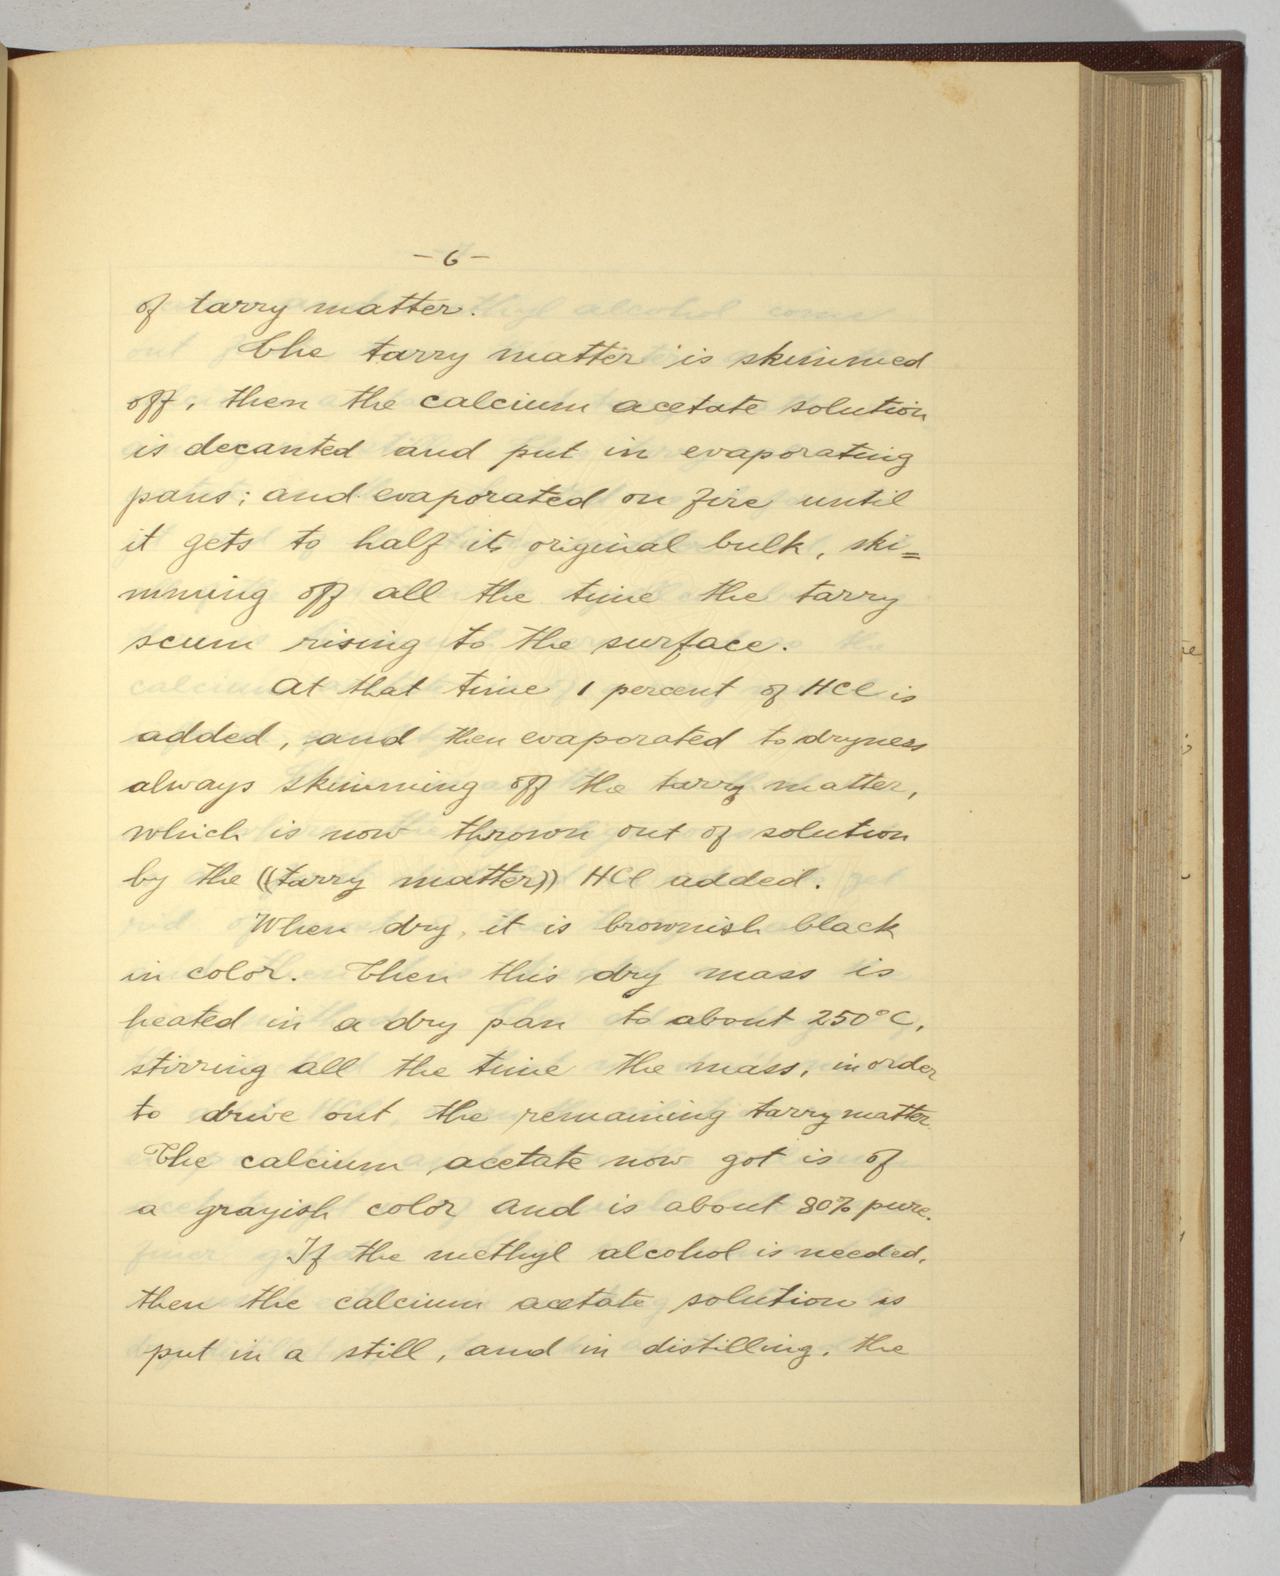 - 6 -
of tarry matter.
The tarry matter is skimmed
off, then the calcium acetate solution
is decanted and put in evaporating
pans; and evaporated on fire until
it gets to half its original bulk, ski=
mming off all the time the tarry
scum rising to the surface.
At that time 1 percent of HCl is
added, and then evaporated to dryness
always skimming off the tarry matter,
which is now thrown out of solution
by the ((tarry matter)) HCl added.
When dry, it is brownish black
in color. Then this dry mass is
heated in a dry pan to about 250°C,
stirring all the time the mass, in order
to drive out the remaining tarry matter.
The calcium acetate now got is of
a grayish color and is about 80% pure.
If the methyl alcohol is needed,
then the calcium acetate solution is
put in a still, and in distilling, the